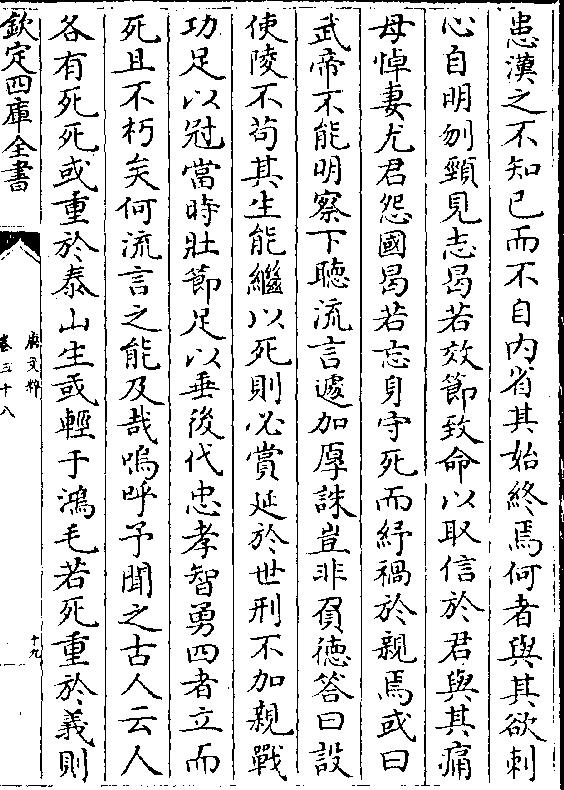 患漢之不知已而不自内省其始終焉何者與其欲刺
心自明刎頸見志曷若效節致命以取信於君與其痛
母悼妻尤君怨國曷若忘身守死而紓禍於親焉或曰
武帝不能明察下聽流言遽加厚誅豈非負徳答曰設
使陵不苟其生能繼以死則必賞延於世刑不加親戰
功足以冠當時壯節足以垂後代忠孝智勇四者立而
死且不朽矣何流言之能及哉嗚呼予聞之古人云人
各有死死或重於泰山生或輕于鴻毛若死重於義則
欽定四庫全書
唐文粹
卷三十八
十九